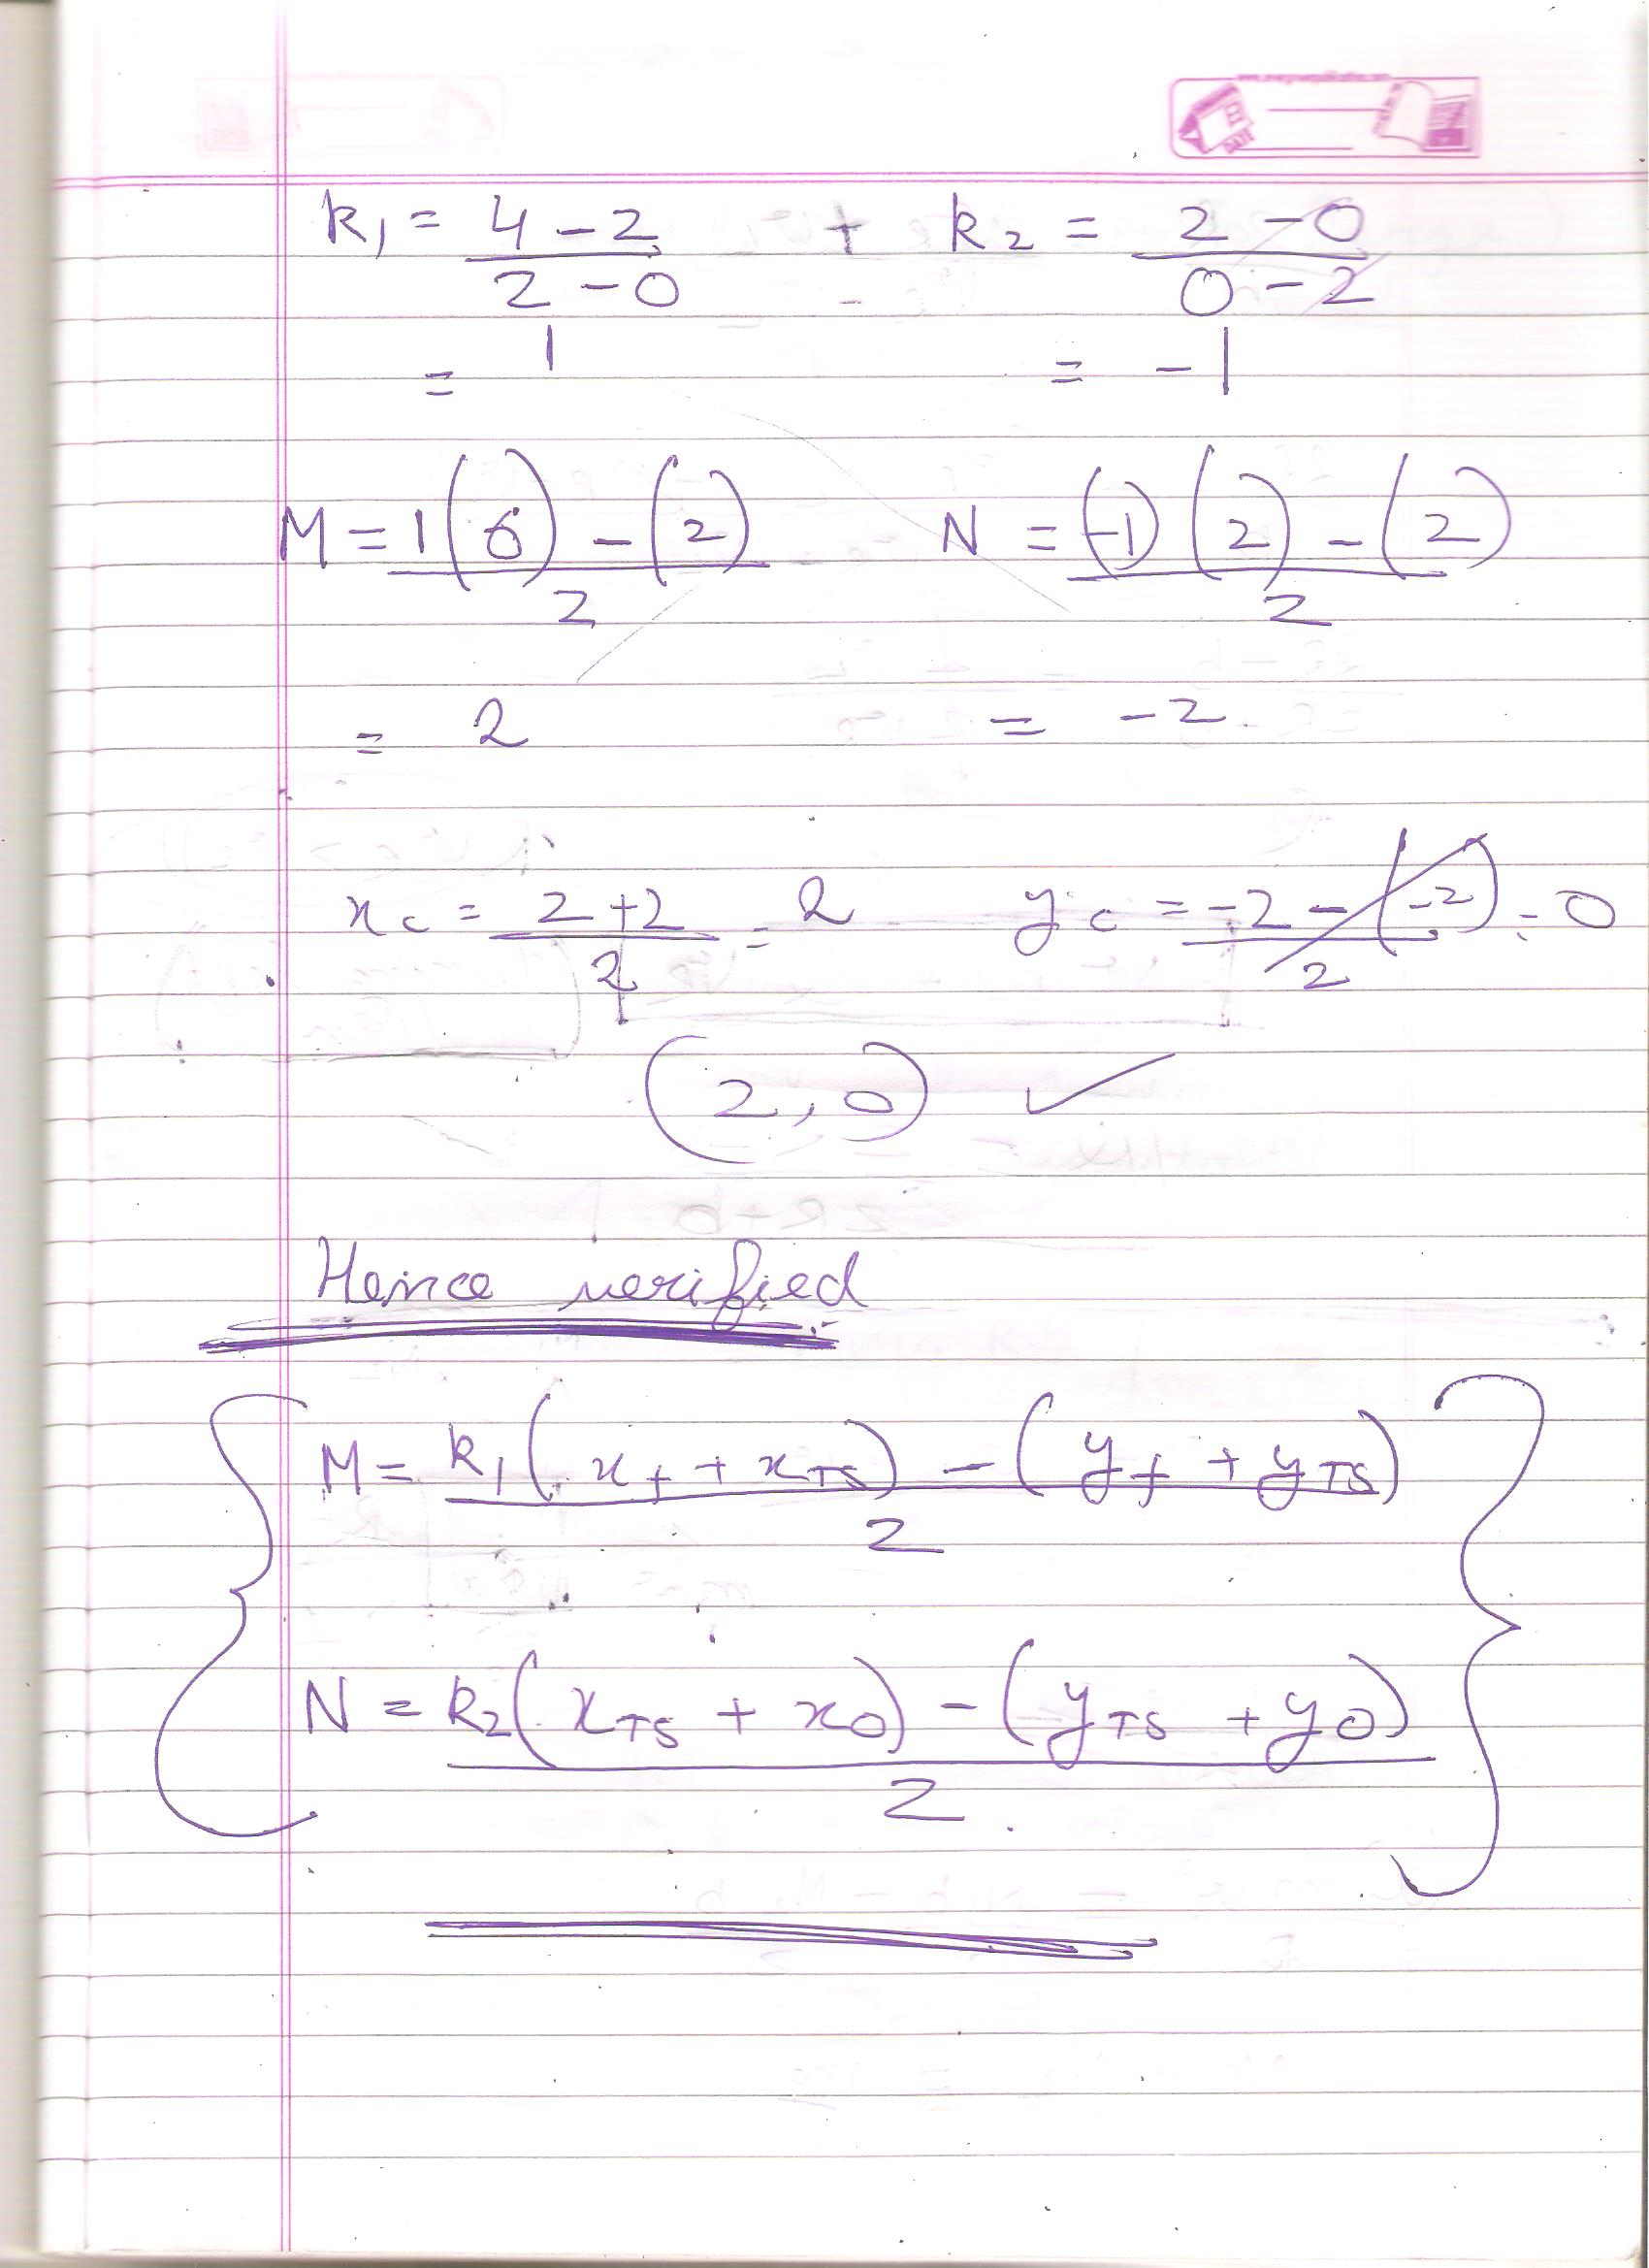 k₁ = (4 - 2)/(2 - 0) + k₂ = (2 - 0)/(0 - 2)
= 1 = -1
M = 1(6) - (2)/2 N = (-1)(2) - (2)/2
= 2 = -2
x_c = (2 + 2)/2 = 2 y_c = -2 - (-2)/2 = 0
(2, 0) ✓
Hence verified
M = k₁(x_f + x_TS) - (y_f + y_TS)/2
N = k₂(x_TS + x_0) - (y_TS + y_0)/2